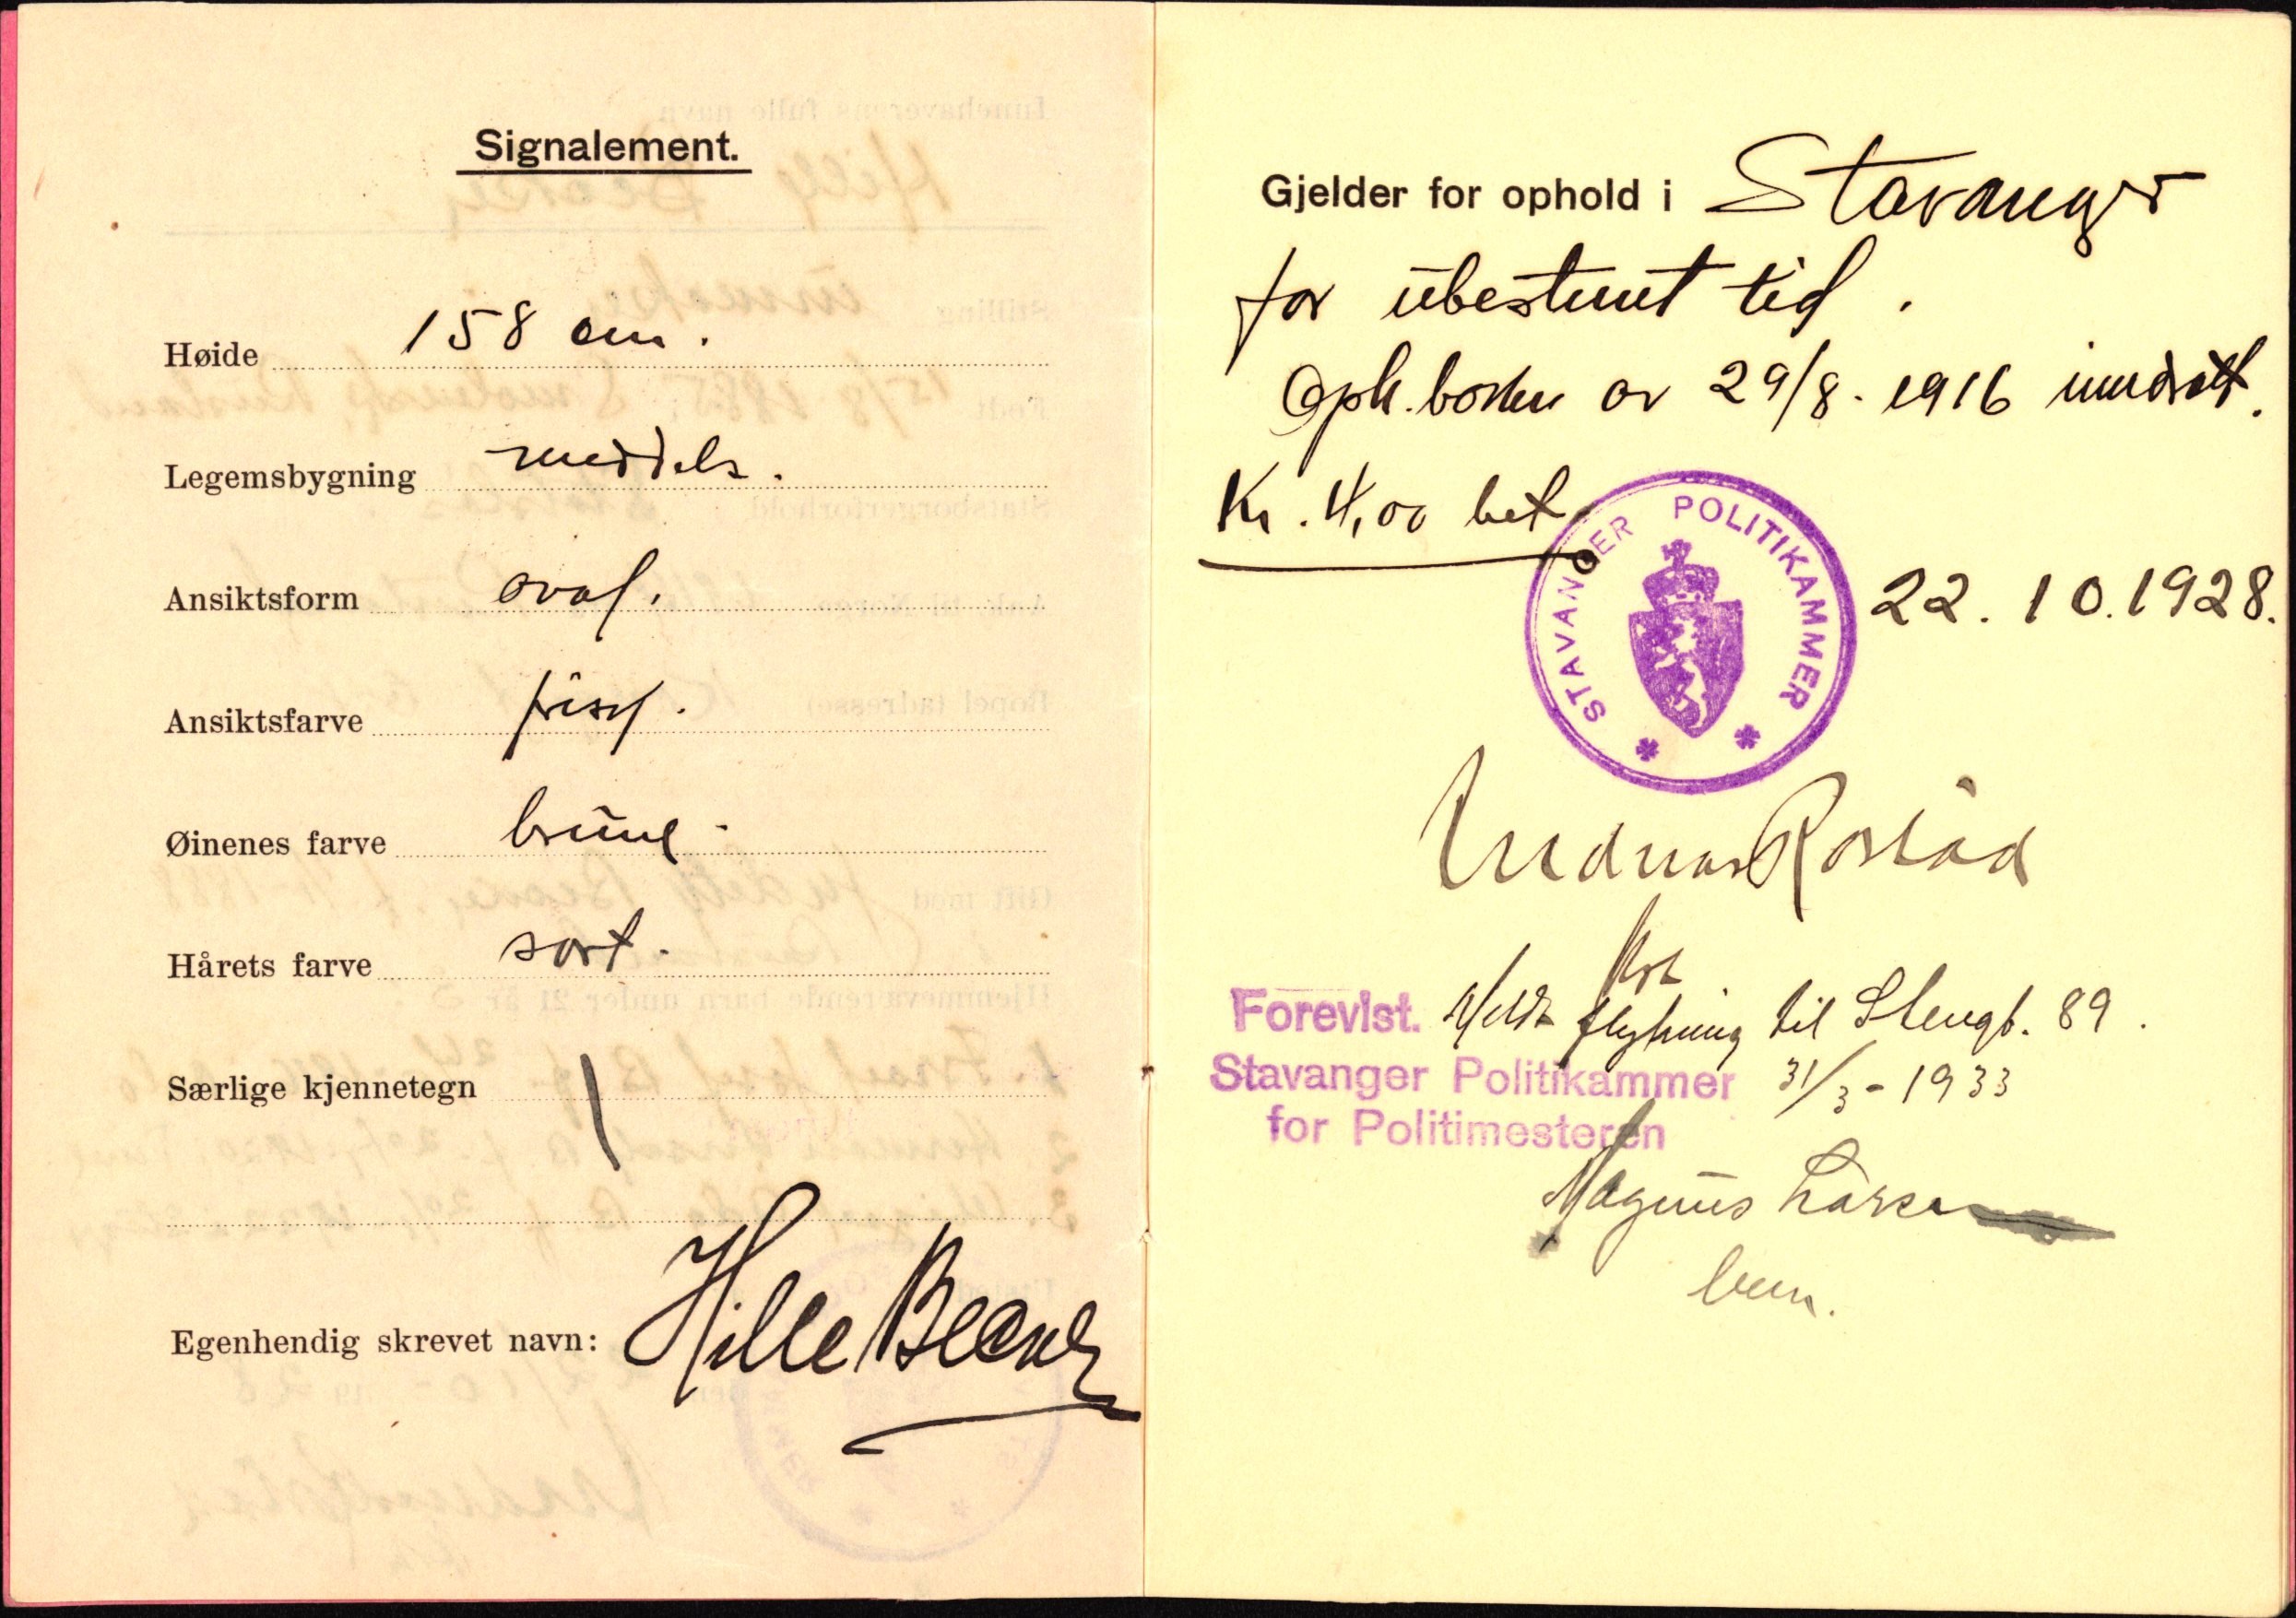 Signalement.
Høide 158 cm.
Legemsbygning middels.
Ansiktsform oval.
Ansiktsfarve frisk.
Øinenes farve brune
Hårets farve sort.
Særlige kjennetegn
Egenhendig skrevet navn: Hille Becker
Gjelder for ophold i Stavanger
for ubestemt tid.
Oph.boken av 29/8-1916 inndratt.
Kr. 4,00 bet
STAVANGER POLITIKAMMER
22.10.1928.
Rostad
Forevist. Meldt flytning til Stengt. 89.
Stavanger Politikammer 31/3-1933
for Politimesteren
Magnus Larsen